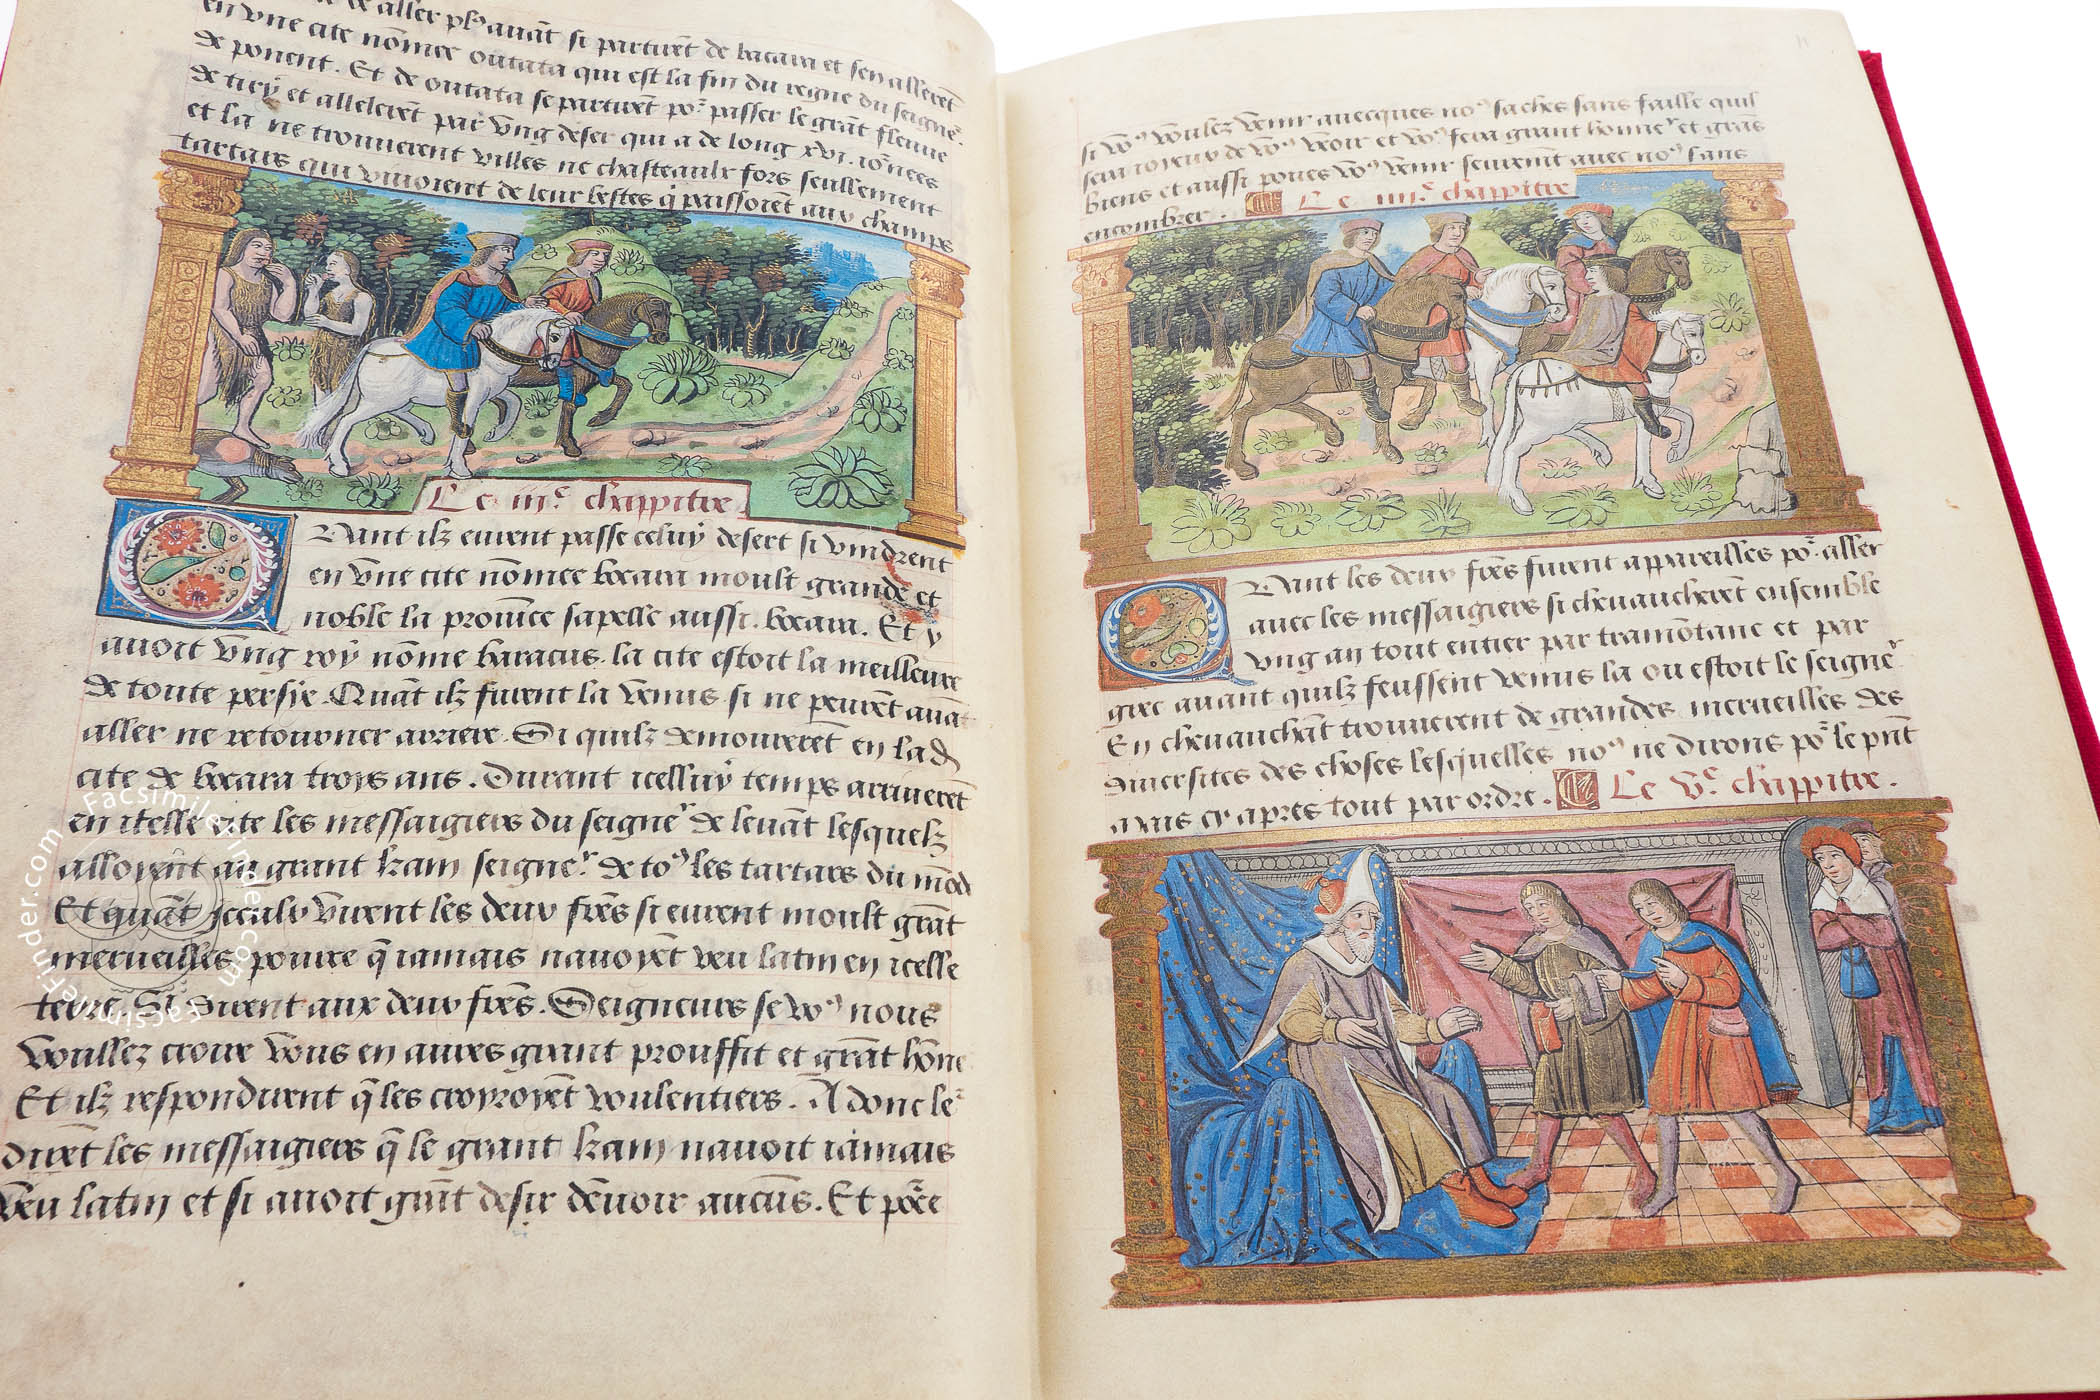 de aller plꝰ auāt si partirēt de bacara et sen allerēt
en vne cite nōmee outata qui est la fin du regne du seignēʳ
de ponent. Et de outata se partirēt poʳ passer le grāt fleuue
de tigry et allerēt par vng desert qui a de long xvi. iorͦnees
et la ne trouuerent villes ne chasteaulx fors seullement
tartars qui viuoient de leur bestes q̄ paissoiēt aux champs
Le iiiᵉ. chappitre
Quant ilz eurent passe celuy desert si vindrent
en vne cite nōmee bocara moult grande et
noble la prouīce sapelle aussi. bocara. Et y
auoit vng roy nōme baracus. la cite estoit la meilleure
de toute persie. Quāt ilz furent la venus si ne peurēt auāt
aller ne retourner arriere. Si quilz demourerēt en lad
cite de bocara troys ans. Durant icelluy temps arriuerēt
en icelle cite les messaigiers du seignēʳ de leuāt lesquelz
alloyēt au grant kaam seignēʳ de toꝰ les tartars du mōde
Et quāt iceulx virent les deux frēs si eurent moult grāt
merueilles pource q̄ iamais nauoyēt veu latin en icelle
terre. Si dirent aux deux frēs. Seigneurs se voꝰ nous
voullez croire vous en aures grant prouffit et grāt hōneʳ
Et ilz respondirent q̄ les croyroyēt voulentiers. A donc leʳ
dirēt les messaigiers q̄ le grant kaam nauoit iāmais
veu latin et si auoit grāt desir dēuoir aucūs. Et poʳce
si voꝰ voulez venir auecques noꝰ saches sans faille quil
sera ioyeux de voꝰ veoir et voꝰ fera grant honneʳ et grās
biens et aussi poues voꝰ venir seurenīt auec noꝰ sans
encombrer. Le iiiiᵉ. chappitre
Quant les deux frēs furent appareilles poʳ aller
auec les messaigiers si cheuaucherēt ensemble
vng an tout entier par tramōtane et par
grec auant quilz feussent venus la ou estoit le seignēʳ
En cheuauchāt trouuerent de grandes merueilles des
diuersites des choses lesquelles noꝰ ne dirons poʳ le pn̄t
mais cy apres tout par ordre. Le vᵉ. chappitre.
Facsimilefinder.com Facsimilefinder.com